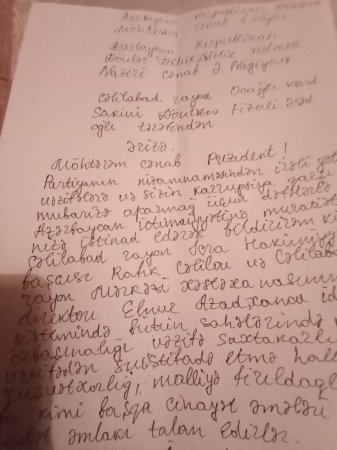 Azərbaycan Respublikası Prezidenti
Möhtərəm cənab İ. Əliyevə
Azərbaycan Respublikası
Dövlət Təhlükəsizlik Xidməti
cənab Ə. Nağıyevə
Cəlilabad rayon Ocaqlı kənd
Sakini Dövlətov Fizuli Əsəd
oğlu tərəfindən
Ərizə.
Möhtərəm cənab Prezident!
Partiyanın nizamnaməsindən irəli gə
vəzifələrə və sizin karrupsiya qarşı
mübarizə aparmaq üçün dəfələrlə
Azərbaycan ictimaiyyətinə müraciətı
nizə istinad edərək bildirirəm ki
Cəlilabad rayon İcra Hakimiyyə
başçısı Rafik Cəlilov və Cəlilaba
rayon Mərkəzi xəstəxanasının
direktoru Elnur Azadxanov id
sistemində bütün sahələrində
özbaşınalığı, vəzifə saxtakarlı
vəzifədən suistifadə etmə hall
rüşvətxorlığı, malliyə fırıldaql
kimi başqa cinayət əməllər
əmlakı talan edirlər.